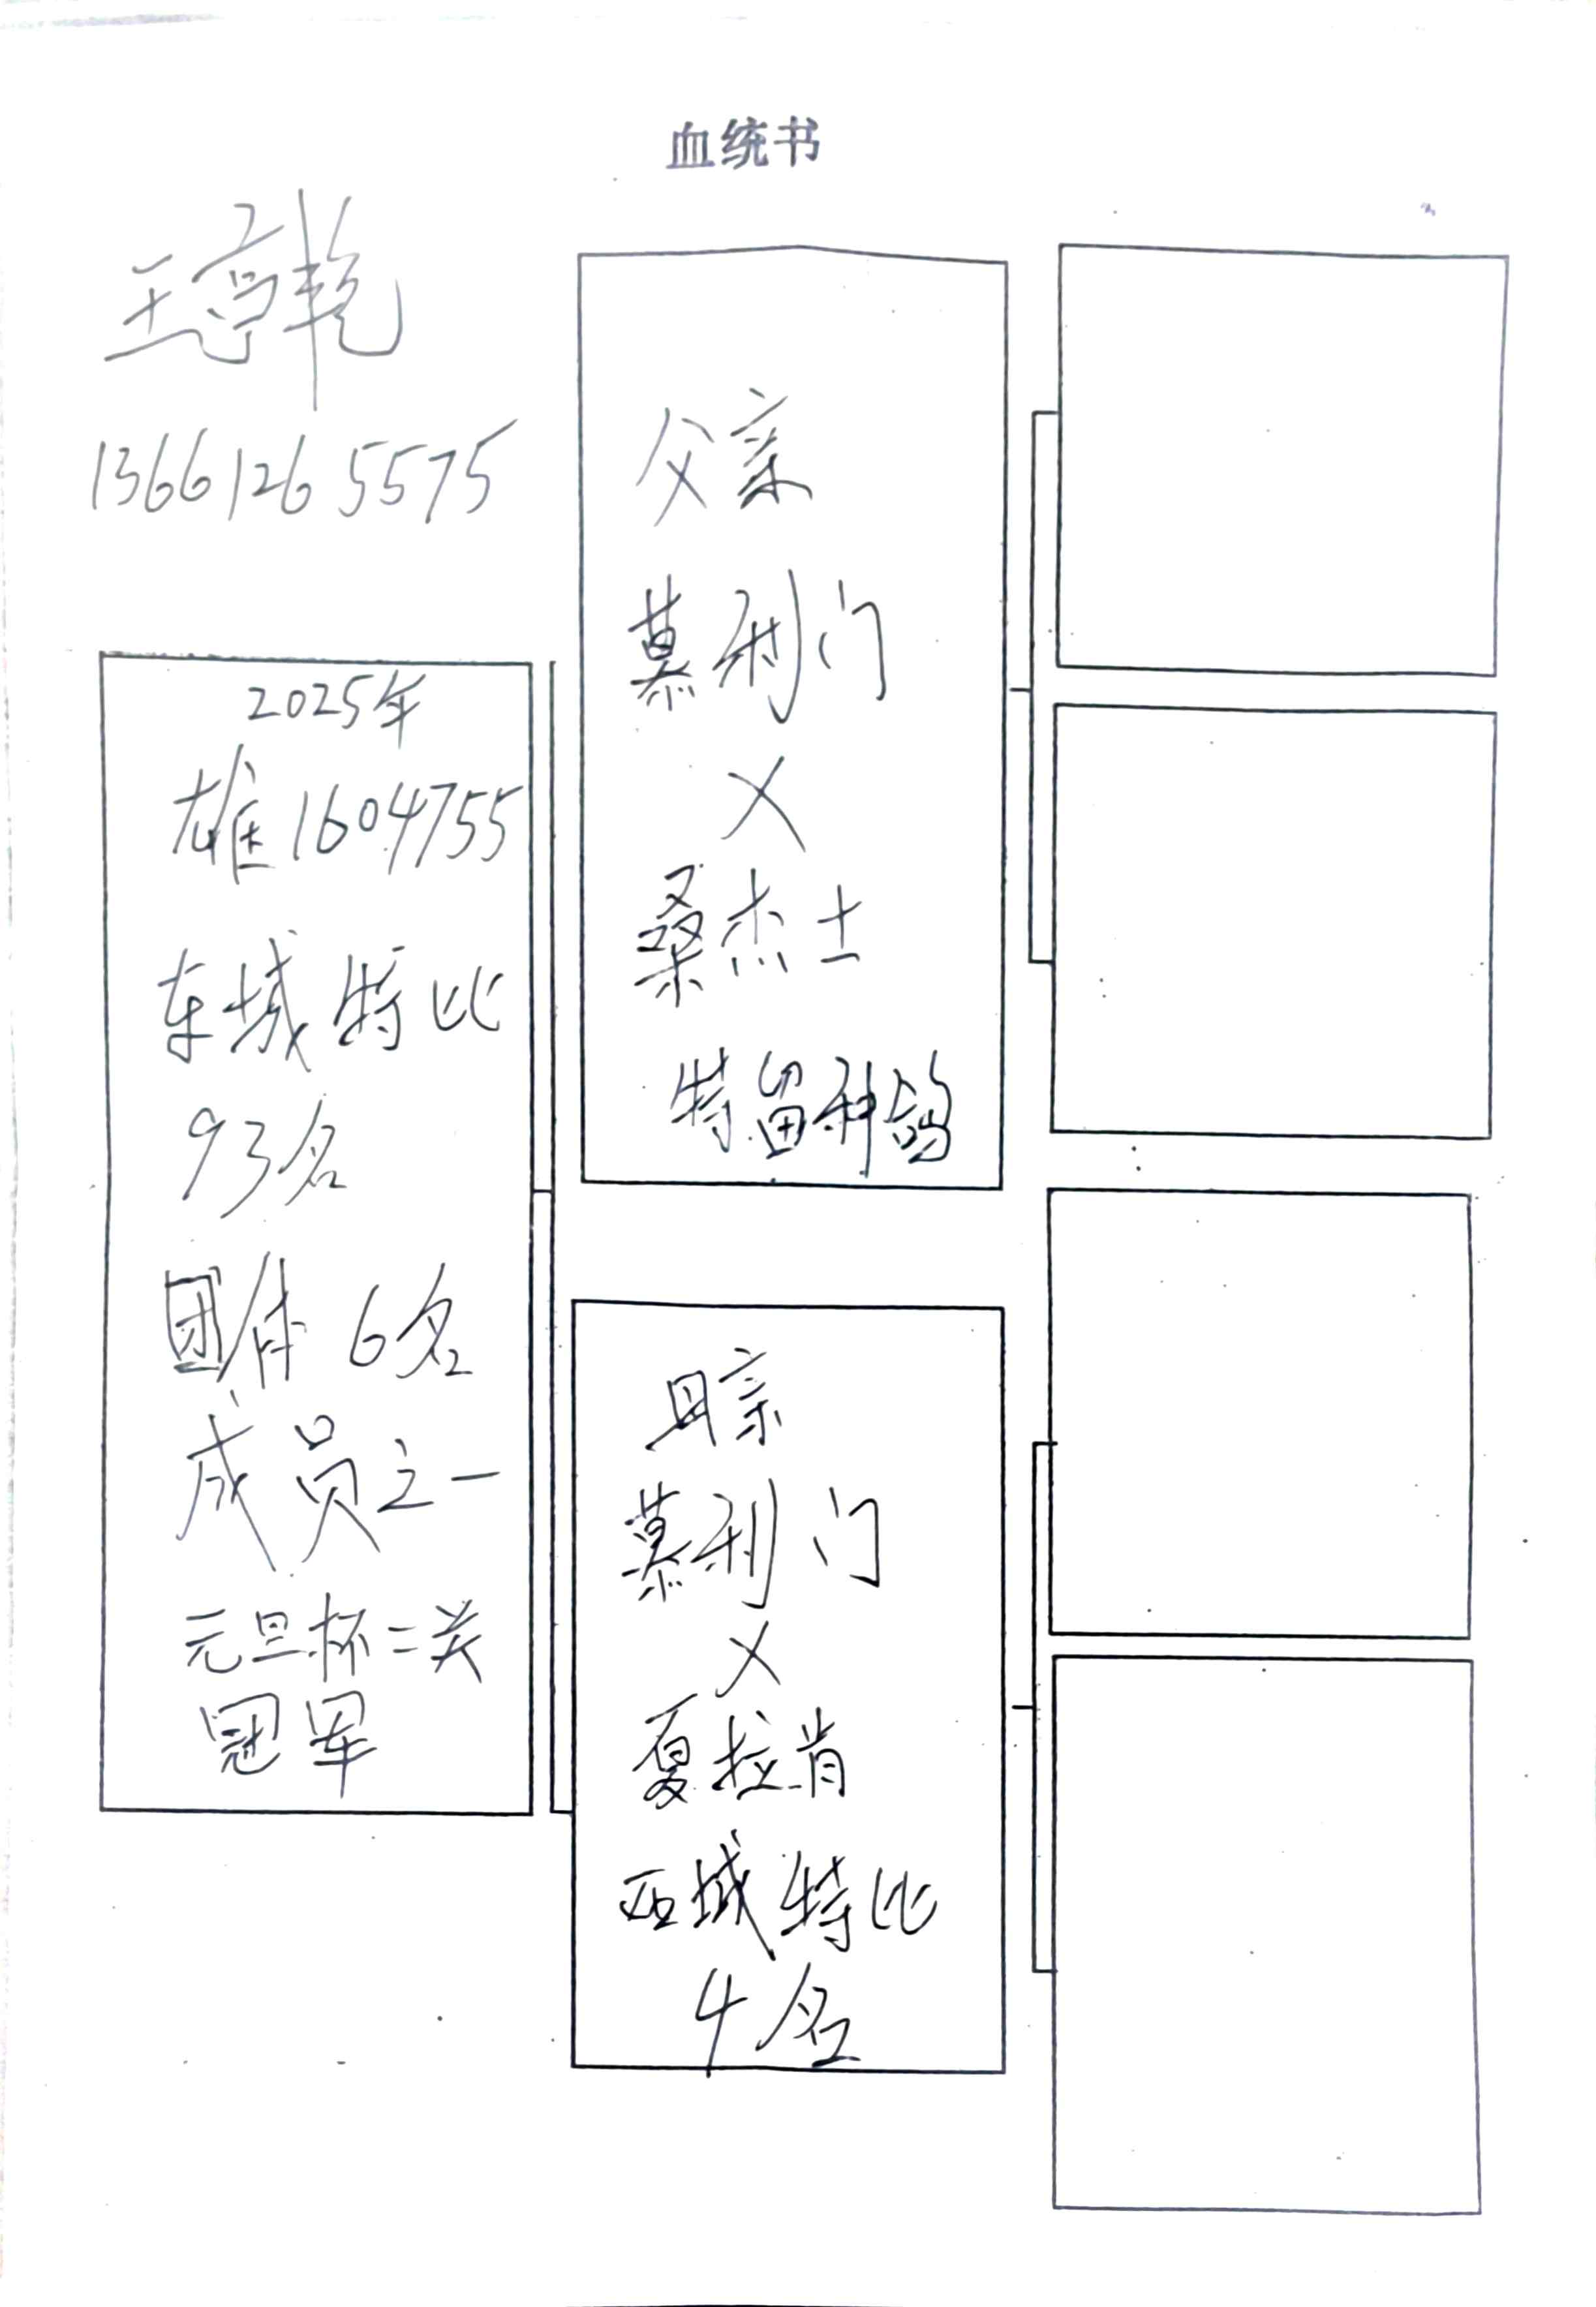 血统书
王
13661265575
2025年
雄1604755
东城特比
93名
团体6名
成员之一
元旦杯二关
冠军
父亲
慕利门
X
桑杰士
特留种鸽
母亲
慕利门
X
夏拉肯
西城特比
4名